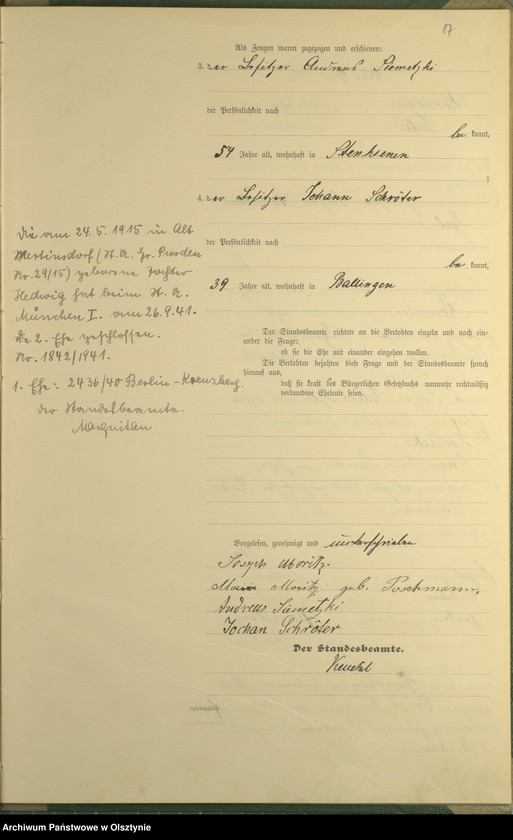 17
Als Zeugen waren zugezogen und erschienen:
3. der Besitzer Andreas Siemetzki
der Persönlichkeit nach
be kannt,
54 Jahre alt, wohnhaft in
;
4. der Besitzer Johann Schröter
der Persönlichkeit nach
be kannt,
39 Jahre alt, wohnhaft in Battingen
Die am 24.5.1915 in Alt
Mertinsdorf (St. A. Gr. Purden
Nr. 29/15) geborene Tochter
Hedwig hat beim St. A.
München I. am 26.9.41.
die 2. Ehe geschlossen.
Nr. 1842/1941.
1. Ehe: 2436/40 Berlin-Kreuzberg.
Der Standesbeamte.
Der Standesbeamte richtete an die Verlobten einzeln und nach ein-
ander die Frage:
ob sie die Ehe mit einander eingehen wollen.
Die Verlobten bejahten diese Frage und der Standesbeamte sprach
hierauf aus,
daß sie kraft des Bürgerlichen Gesetzbuchs nunmehr rechtmäßig
verbundene Eheleute seien.
Vorgelesen, genehmigt und unterschrieben
Joseph Moritz.
Maria Moritz geb. Poschmann,
Andreas Siemetzki
Johan Schröter
Der Standesbeamte.
Archiwum Państwowe w Olsztynie